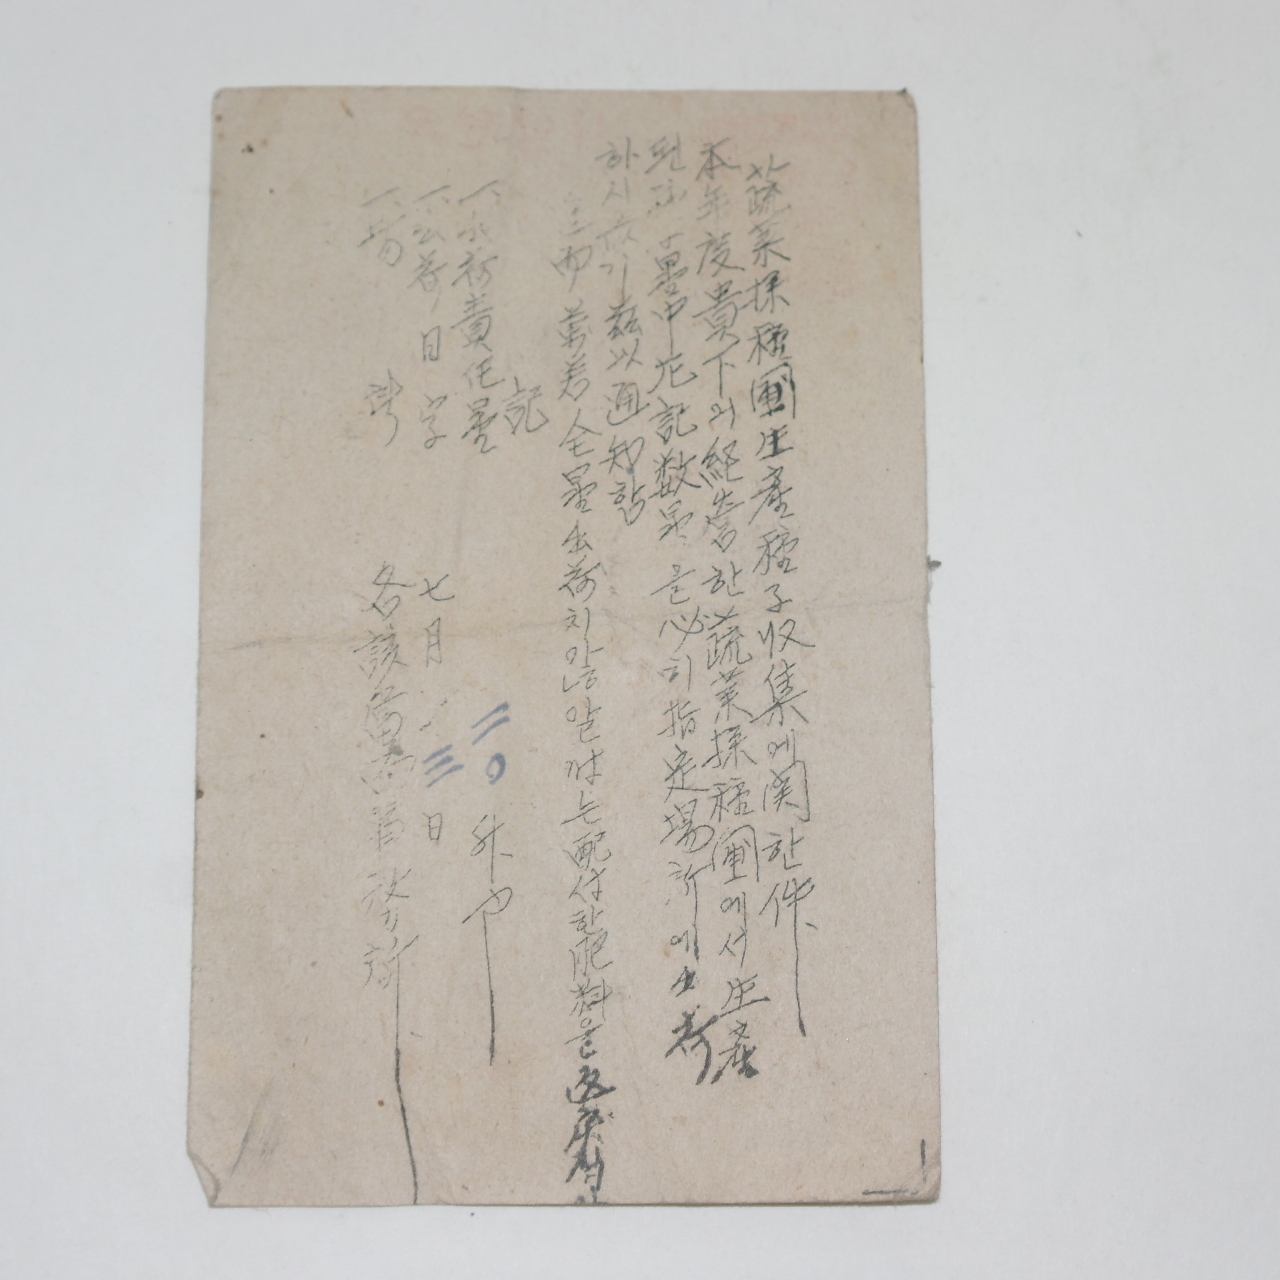 蔬菜採種圃生産種子収集에関한件
本年度貴下의経営한蔬菜採種圃에서生産
된 量中左記数量을必히指定場所에出荷
하시 기玆以通知함
追而 万若全量出荷치않을 는配付한肥料을
記
一、出荷責任量 二〇 升也
一、出荷日字 七月 三 日
一、場 所 各該當面 務所